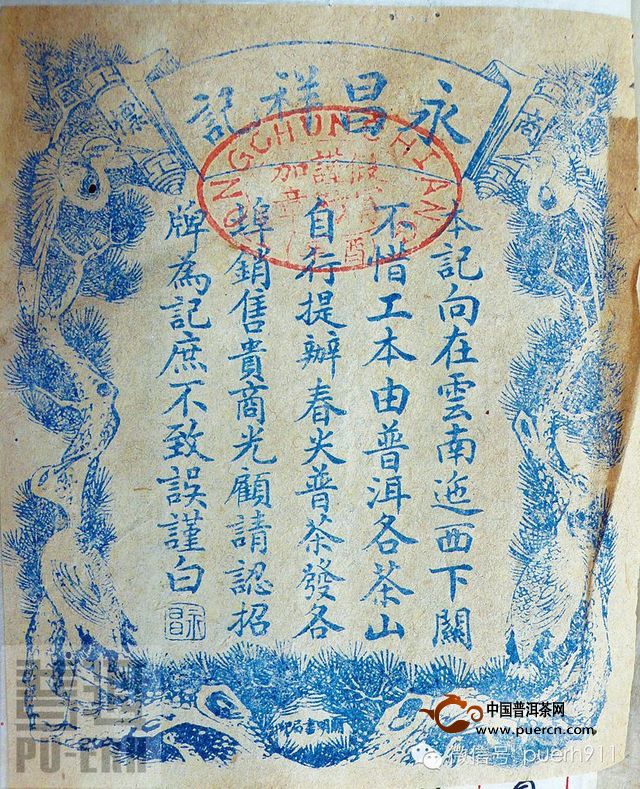 商標
永昌祥記
本記向在雲南迤西下關
不惜工本由普洱各茶山
自行提辦春尖普茶發各
埠銷售貴商光顧請認招
牌為記庶不致誤謹白
加章
明書局印
普洱
PU-ERH
中国普洱茶网
www.puercn.com
微信号: puerh911